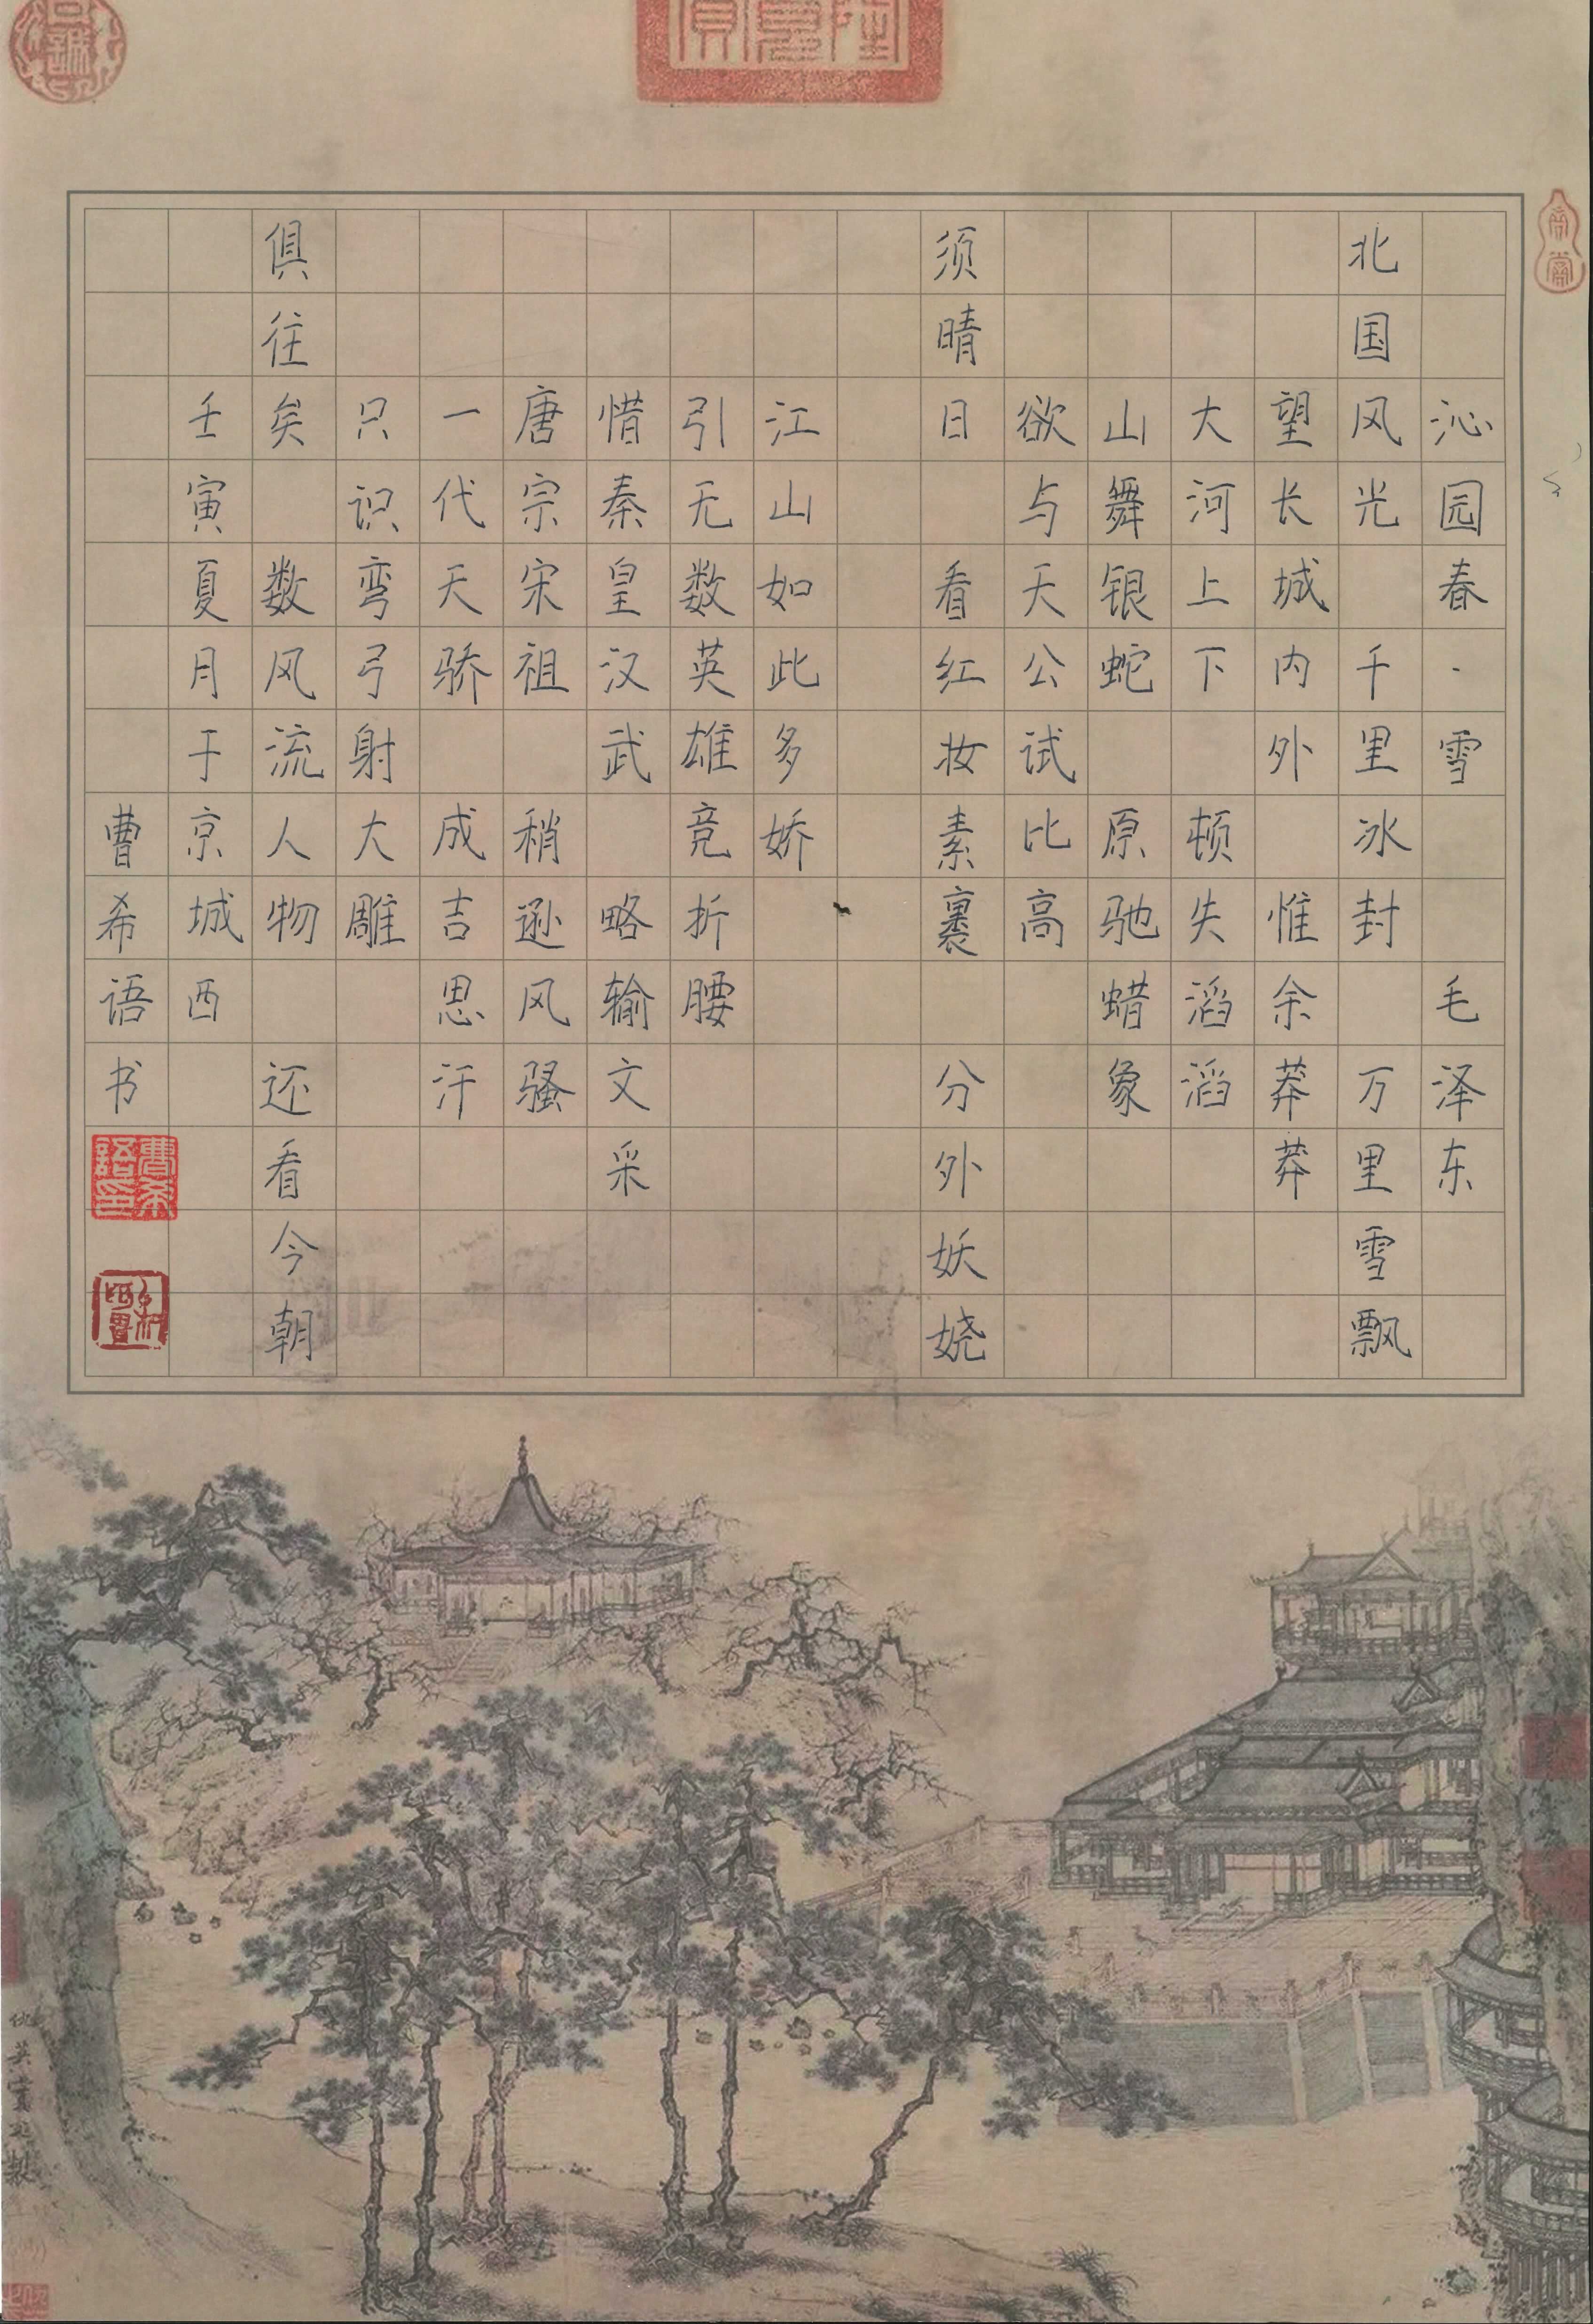 沁园春·雪 毛泽东
北国风光 千里冰封 万里雪飘
望长城内外 惟余莽莽
大河上下 顿失滔滔
山舞银蛇 原驰蜡象
欲与天公试比高
须晴日 看红妆素裹 分外妖娆
江山如此多娇
引无数英雄竞折腰
惜秦皇汉武 略输文采
唐宗宋祖 稍逊风骚
一代天骄 成吉思汗
只识弯弓射大雕
俱往矣 数风流人物 还看今朝
壬寅夏月于京城西
曹希语书